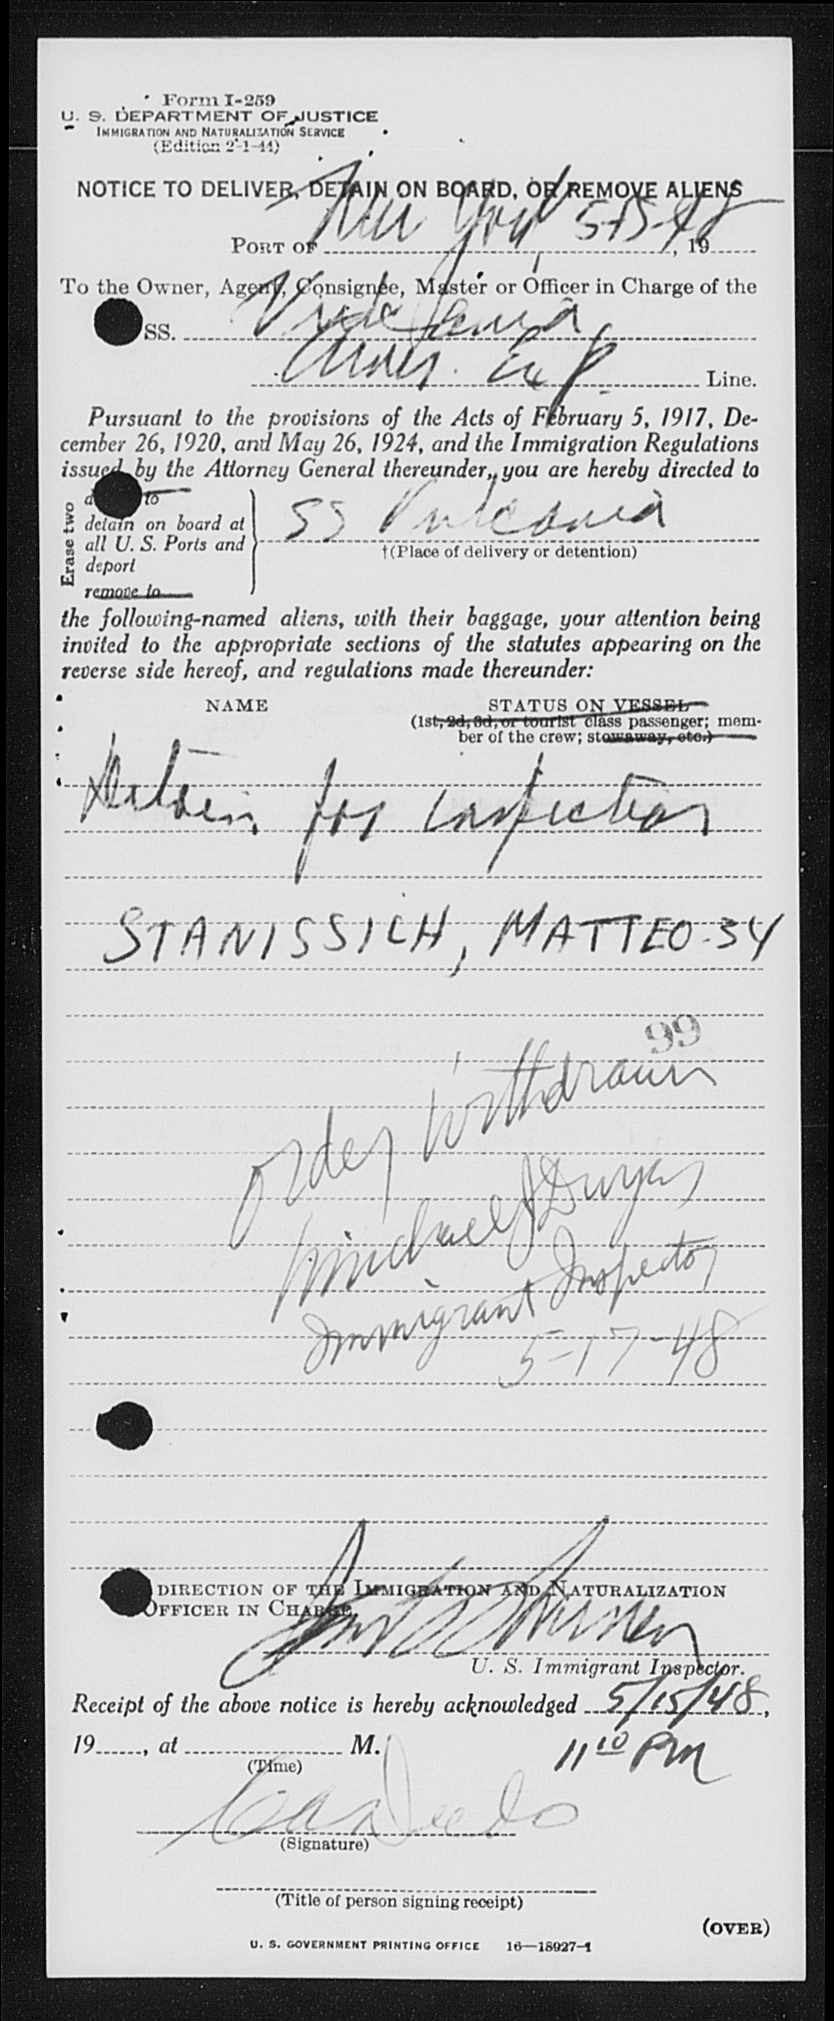 Form I-259
U. S. DEPARTMENT OF JUSTICE
IMMIGRATION AND NATURALIZATION SERVICE
(Edition 2-1-44)
NOTICE TO DELIVER, DETAIN ON BOARD, OR REMOVE ALIENS
PORT OF New York 5-15-48, 19
To the Owner, Agent, Consignee, Master or Officer in Charge of the
SS. Vulcania
Amer. Exp. Line.
Pursuant to the provisions of the Acts of February 5, 1917, De-
cember 26, 1920, and May 26, 1924, and the Immigration Regulations
issued by the Attorney General thereunder, you are hereby directed to
Erase two
to
detain on board at
all U. S. Ports and
deport
remove to
SS Vulcania
†(Place of delivery or detention)
the following-named aliens, with their baggage, your attention being
invited to the appropriate sections of the statutes appearing on the
reverse side hereof, and regulations made thereunder:
NAME STATUS ON VESSEL
(1st, 2d, 3d, or tourist class passenger; mem-
ber of the crew; stowaway, etc.)
Detain for inspection
STANISSICH, MATTEO-34
99
Order Withdrawn
Michael J Dwyer
Immigrant Inspector
5-17-48
DIRECTION OF THE IMMIGRATION AND NATURALIZATION
OFFICER IN CHARGE,
U. S. Immigrant Inspector.
Receipt of the above notice is hereby acknowledged 5/15/48,
19......, at M. 11 10 PM
(Time)
(Signature)
(Title of person signing receipt)
(OVER)
U. S. GOVERNMENT PRINTING OFFICE 16—18927-1